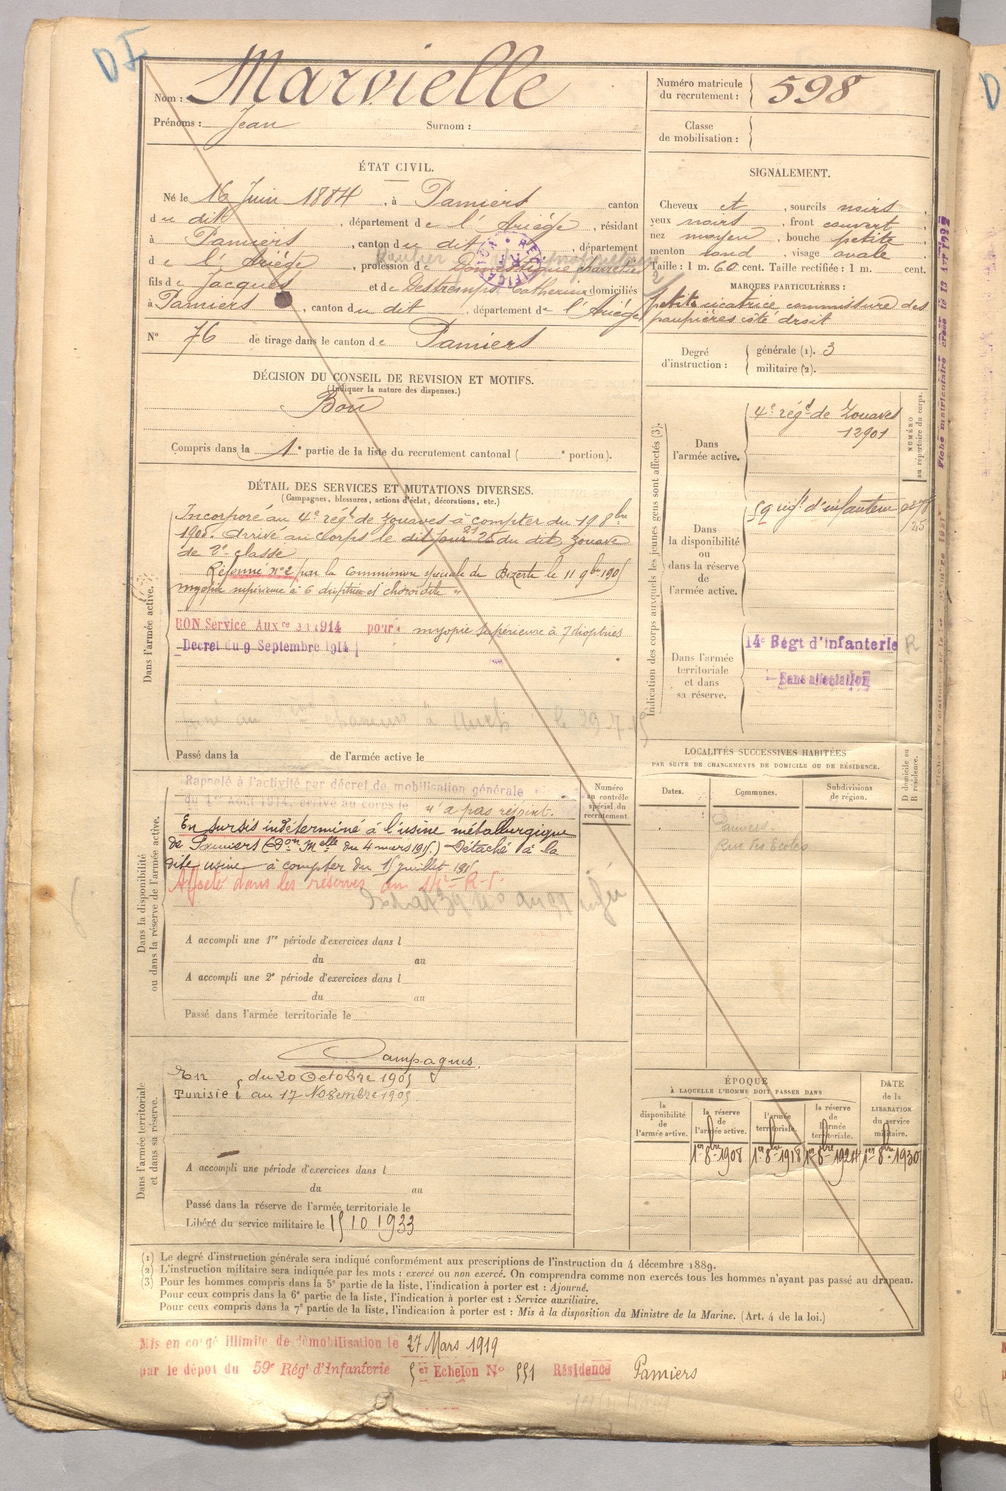 DI
Nom : Marvielle
Prénoms : Jean Surnom :
Numéro matricule
du recrutement : 598
Classe
de mobilisation :
ÉTAT CIVIL.
Né le 16 Juin 1884, à Pamiers canton
du dit, département de l'Ariège, résidant
à Pamiers, canton du dit, département
de l'Ariège, profession de Domestique
fils de Jacques et de Destremps Catherine domiciliés
à Pamiers, canton du dit, département de l'Ariège
N° 76 de tirage dans le canton de Pamiers
SIGNALEMENT.
Cheveux et, sourcils noirs
yeux noirs, front couvert
nez moyen, bouche petite
menton rond, visage ovale
Taille : 1 m. 60 cent. Taille rectifiée : 1 m. cent.
MARQUES PARTICULIÈRES :
petite cicatrice commissure des
paupières côté droit
Degré
d'instruction :
générale (1). 3
militaire (2).
DÉCISION DU CONSEIL DE REVISION ET MOTIFS.
(Indiquer la nature des dispenses.)
Bon
Compris dans la 1e partie de la liste du recrutement cantonal ( e portion).
DÉTAIL DES SERVICES ET MUTATIONS DIVERSES.
(Campagnes, blessures, actions d'éclat, décorations, etc.)
Dans l'armée active.
Incorporé au 4e régt de Zouaves à compter du 19 8bre
1905. Arrivé au corps le dit jour 25 du dit, Zouave
de 2e classe
Réformé n° 2 par la commission spéciale de Bizerte le 11 9bre 1905
myopie supérieure à 6 dioptries et choroïdite
BON Service Auxre 1914 pour : myopie supérieure à 7 dioptries
Décret du 9 Septembre 1914
à Auch le 29-7-15
Passé dans la de l'armée active le
Indication des corps auxquels les jeunes gens sont affectés (3).
NUMÉRO
au répertoire du corps.
Dans
l'armée active.
4e régt de Zouaves
12901
Dans
la disponibilité
ou
dans la réserve
de
l'armée active.
59 inft d'infanterie
Dans l'armée
territoriale
et dans
sa réserve.
14e Régt d'Infanterie R
Sans affectation
LOCALITÉS SUCCESSIVES HABITÉES
PAR SUITE DE CHANGEMENTS DE DOMICILE OU DE RÉSIDENCE.
D domicile ou
R résidence.
Dates. Communes. Subdivisions
de région.
Pamiers
Rue des Ecoles
Numéro
au contrôle
spécial du
recrutement
Dans la disponibilité
ou dans la réserve de l'armée active.
Rappelé à l'activité par décret de mobilisation générale
du 1er Août 1914, arrivé au corps le n'a pas rejoint.
En sursis indéterminé à l'usine métallurgique
de Pamiers (don Melle du 4 mars 1915.) Détaché à la
dite usine à compter du 15 juillet 1915
Affecté dans les réserves au 14e R.I.
A accompli une 1re période d'exercices dans l
du au
A accompli une 2e période d'exercices dans l
du au
Passé dans l'armée territoriale le
Dans l'armée territoriale
et dans sa réserve.
Campagnes
En du 20 Octobre 1905
Tunisie au 17 Novembre 1905
A accompli une période d'exercices dans l
du au
Passé dans la réserve de l'armée territoriale le
Libéré du service militaire le 15 10 1933
ÉPOQUE
À LAQUELLE L'HOMME DOIT PASSER DANS
la
disponibilité
de
l'armée active.
la réserve
de
l'armée active.
l'armée
territoriale.
la réserve
de
l'armée
territoriale.
DATE
de la
LIBÉRATION
du service
militaire.
1er 8bre 1908 1er 8bre 1918 1er 8bre 1924 1er 8bre 1930
(1) Le degré d'instruction générale sera indiqué conformément aux prescriptions de l'instruction du 4 décembre 1889.
(2) L'instruction militaire sera indiquée par les mots : exercé ou non exercé. On comprendra comme non exercés tous les hommes n'ayant pas passé au drapeau.
(3) Pour les hommes compris dans la 5e partie de la liste, l'indication à porter est : Ajourné.
Pour ceux compris dans la 6e partie de la liste, l'indication à porter est : Service auxiliaire.
Pour ceux compris dans la 7e partie de la liste, l'indication à porter est : Mis à la disposition du Ministre de la Marine. (Art. 4 de la loi.)
Mis en congé illimité de démobilisation le 27 Mars 1919
par le dépôt du 59e Régt d'Infanterie 5er Echelon N° 551 Résidence Pamiers